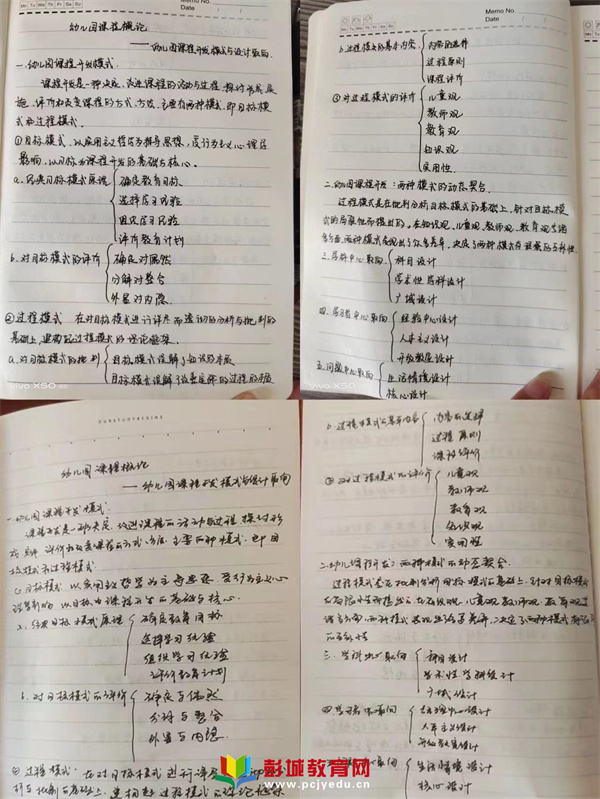 Mo Tu We Th Fr Sa Su
Memo No.
Date / /
幼儿园课程概论
——幼儿园课程开发模式与设计取向
一.幼儿园课程开发模式:
课程开发是一种决定、改进课程的活动与过程,探讨形成、实
施、评价和改变课程的方式、方法,主要有两种模式,即目标模
式和过程模式。
①目标模式 以实用主义哲学为指导思想,受行为主义心理学
影响,以目标为课程开发的基础与核心。
a.经典目标模式原理
确定教育目标
选择学习经验
组织学习经验
评价教育计划
b.对目标模式的评价
确定对偶然
分解对整合
外显对内隐
②过程模式 在对目标模式进行详尽而透彻的分析与批判的
基础上,建构起过程模式的理论框架。
a.对目标模式的批判
目标模式误解了知识的本质
目标模式误解了改善实践的过程的本质
vivo X50
Memo No.
Date / /
b.过程模式的基本内容
内容的选择
过程原则
课程评价
③对过程模式的评价
儿童观
教师观
教育观
知识观
实用性
二.幼儿园课程开发:两种模式的动态契合.
过程模式是在批判分析目标模式的基础上,针对目标模
式的局限性而提出的。在知识观、儿童观、教师观、教育观等诸
多方面,两种模式表现出了许多差异,决定了两种模式存在很强的互补性
三.学科中心取向
科目设计
学术性学科设计
广域设计
四.学习者中心取向
经验中心设计
人本主义设计
开放教室设计
五.问题中心取向
生活情境设计
核心设计
vivo X50
幼儿园课程概论
——幼儿园课程开发模式与设计取向
一.幼儿园课程开发模式:
课程开发是一种决定、改进课程的活动与过程,探讨形
成、实施、评价和改变课程的方式、方法,主要两种模式,即目
标模式和过程模式.
①目标模式:以实用主义哲学为主导思想,受行为主义心
理学影响,以目标为课程开发的基础与核心.
a.经典目标模式原理
确定教育目标
选择学习经验
组织学习经验
评价教育计划
b.对目标模式的评价
确定与偶然
分解与整合
外显与内隐
②过程模式:在对目标模式进行详尽
析与批判的基础上,建构起过程模式的理论框架
b.过程模式的基本内容
内容的选择
过程原则
课程评价
③对过程模式的评价
儿童观
教师观
教育观
知识观
实用性
二.幼儿课程开发:两种模式的动态契合.
过程模式是在批判分析目标模式的基础上,针对目标模式
三.学科中心取向
科目设计
学术性学科设计
广域设计
四.学习者中心取向
经验中心设计
人本主义设计
开放教室设计
生活情境设计
核心设计
彭城教育网
www.pcjyedu.cn